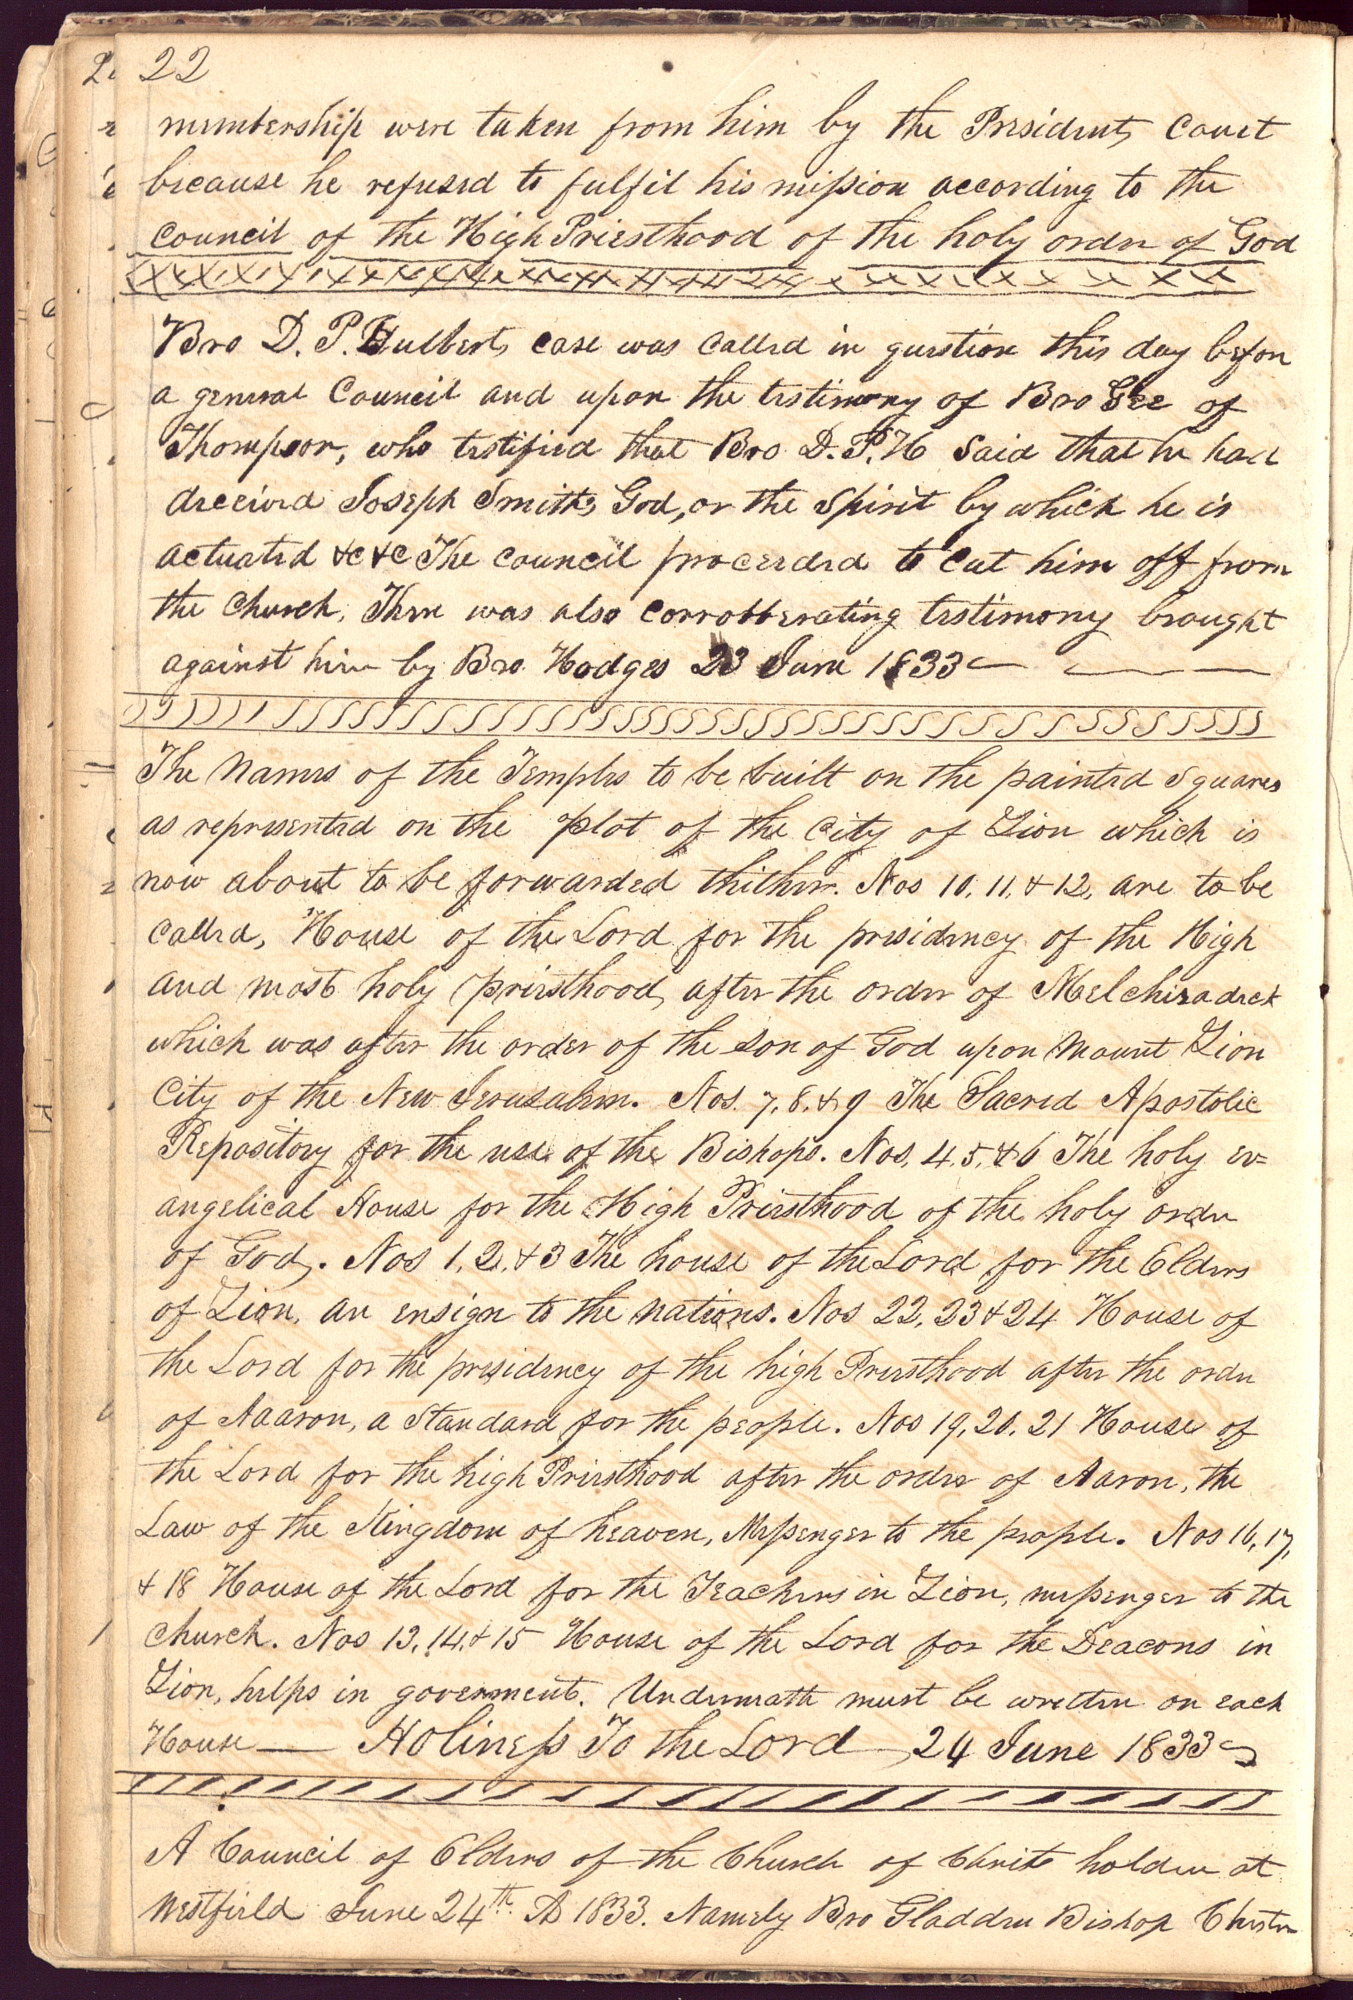 22
membership were taken from him by the Presidents Court
because he refused to fulfil his mission according to the
council of the High Priesthood of the holy order of God
Bro D. P. Hulberts case was called in question this day before
a general Council and upon the testimony of Bro Gee of
Thompson, who testified that Bro D. P. H said that he had
deceived Joseph Smith's God, or the spirit by which he is
actuated &c &c The council proceeded to cut him off from
the church. There was also corrobberating testimony brought
against him by Bro. Hodges 23 June 1833
The names of the Temples to be built on the painted squares
as represented on the plot of the city of Zion which is
now about to be forwarded thither. Nos 10. 11. & 12, are to be
called, House of the Lord for the presidency of the High
and most holy priesthood, after the order of Melchizadeck
which was after the order of the son of God upon Mount Zion
City of the New Jerusalem. Nos. 7, 8, & 9 The Sacred Apostolic
Repository for the use of the Bishops. Nos, 4. 5, & 6 The holy ev=
angelical House for the High Priesthood of the holy order
of God. Nos 1, 2, & 3 The house of the Lord for the Elders
of Zion, an ensign to the nations. Nos 22, 23 & 24 House of
the Lord for the presidency of the high Priesthood after the order
of Aaaron, a standard for the people. Nos 19, 20. 21 House of
the Lord for the high Priesthood after the order of Aaron, the
Law of the Kingdom of heaven, Messenger to the people. Nos 16, 17,
& 18 House of the Lord for the Teachers in Zion, messenger to the
church. Nos 13, 14, & 15 House of the Lord for the Deacons in
Zion, helps in goverment. Underneath must be written on each
House — Holiness To the Lord — 24 June 1833
A Council of Elders of the Church of Christ holden at
Westfield June 24th AD 1833. Namely Bro Gladden Bishop Chester